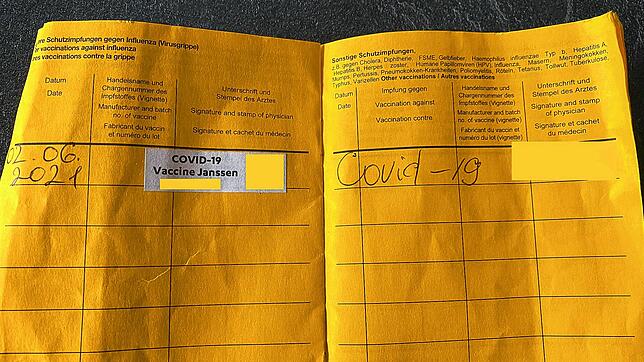 re Schutzimpfungen gegen Influenza (Virusgrippe)
er vaccinations against influenza
res vaccinations contre la grippe
Datum
Date
Handelsname und
Chargennummer des
Impfstoffes (Vignette)
Manufacturer and batch
no. of vaccine
Fabricant du vaccin
et numéro du lot
Unterschrift und
Stempel des Arztes
Signature and stamp of physician
Signature et cachet du médecin
02.06.
2021
COVID-19
Vaccine Janssen
Sonstige Schutzimpfungen,
z.B. gegen Cholera, Diphtherie, FSME, Gelbfieber, Haemophilus influenzae Typ b, Hepatitis A,
Hepatitis B, Herpes zoster, Humane Papillomviren (HPV), Influenza, Masern, Meningokokken,
Mumps, Pertussis, Pneumokokken-Krankheiten, Poliomyelitis, Röteln, Tetanus, Tollwut, Tuberkulose,
Typhus, Varizellen Other vaccinations / Autres vaccinations
Datum
Date
Impfung gegen
Vaccination against
Vaccination contre
Handelsname und
Chargennummer des
Impfstoffes (Vignette)
Manufacturer and batch
no. of vaccine (vignette)
Fabricant du vaccin
et numéro du lot (vignette)
Unterschrift und
Stempel des Arztes
Signature and stamp
of physician
Signature et cachet du
médecin
Covid-19